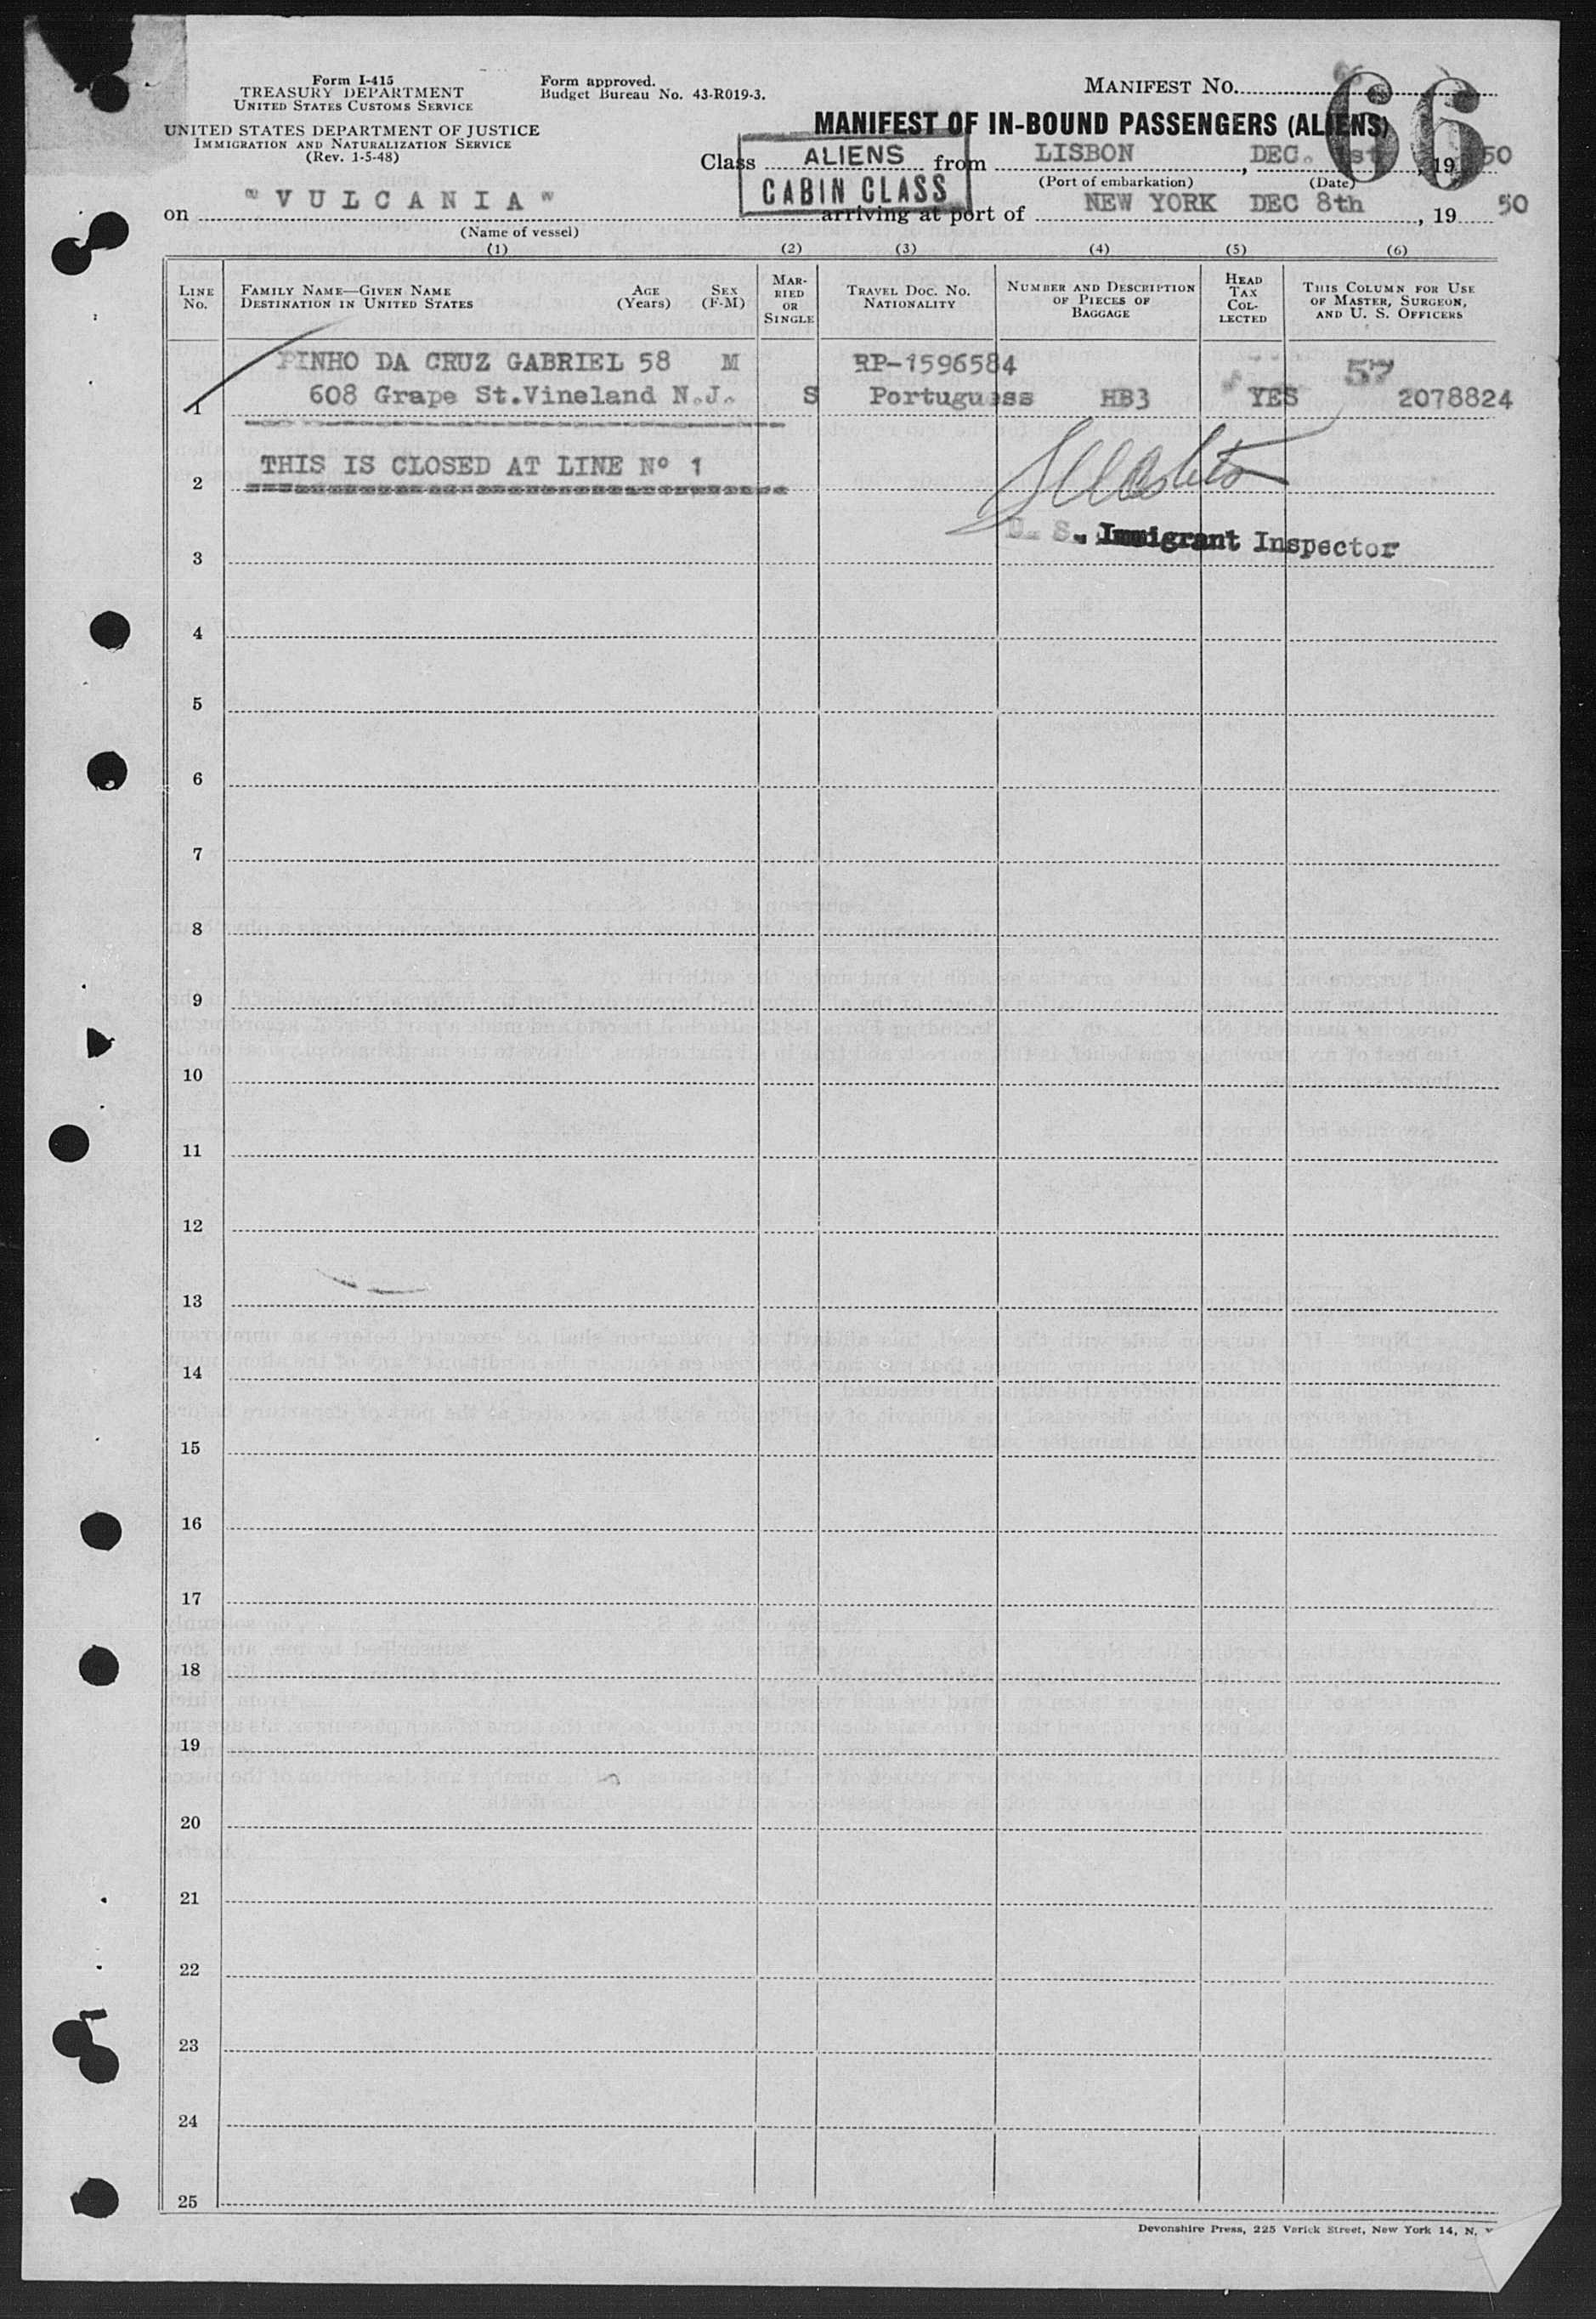 Form I-415
TREASURY DEPARTMENT
UNITED STATES CUSTOMS SERVICE
UNITED STATES DEPARTMENT OF JUSTICE
IMMIGRATION AND NATURALIZATION SERVICE
(Rev. 1-5-48)
Form approved.
Budget Bureau No. 43-R019-3.
MANIFEST NO. 66
MANIFEST OF IN-BOUND PASSENGERS (ALIENS)
Class ALIENS from LISBON, DEC. 1st, 19 50
CABIN CLASS
(Port of embarkation) (Date)
on "VULCANIA" arriving at port of NEW YORK DEC 8th, 19 50
(Name of vessel)
(1) (2) (3) (4) (5) (6)
LINE No.
FAMILY NAME—GIVEN NAME
DESTINATION IN UNITED STATES
AGE (Years)
SEX (F-M)
MARRIED OR SINGLE
TRAVEL DOC. NO.
NATIONALITY
NUMBER AND DESCRIPTION OF PIECES OF BAGGAGE
HEAD TAX COLLECTED
THIS COLUMN FOR USE OF MASTER, SURGEON, AND U. S. OFFICERS
PINHO DA CRUZ GABRIEL 58 M RP-1596584 57
1 608 Grape St.Vineland N.J. S Portuguess HB3 YES 2078824
2 THIS IS CLOSED AT LINE Nº 1
U. S. Immigrant Inspector
3
4
5
6
7
8
9
10
11
12
13
14
15
16
17
18
19
20
21
22
23
24
25
Devonshire Press, 225 Varick Street, New York 14, N. Y